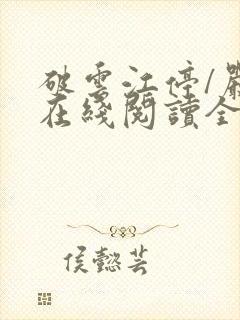 破雲江停/嚴
在綫閱讀全
侯懿芸